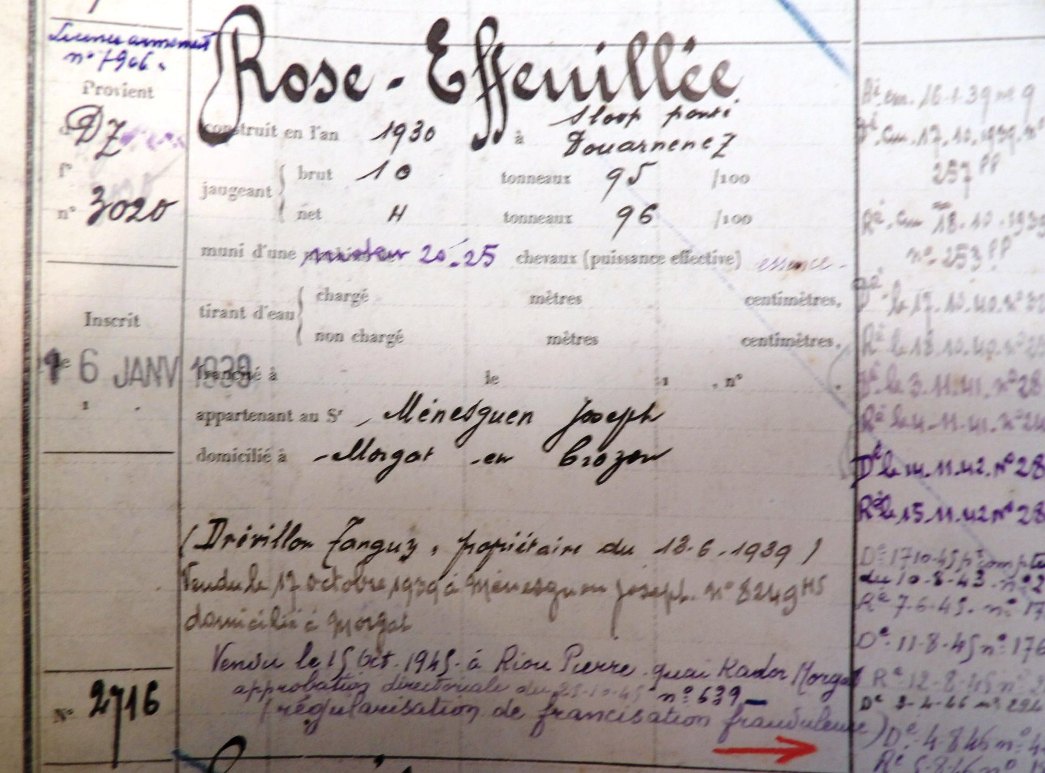 Licence armement
n° 1906.
Provient
DZ
f°
n° 3020
Inscrit
16 JANV 1939
N° 2716
Rose-Effeuillée
Sloop ponté
construit en l'an 1930 à Douarnenez
jaugeant
brut 10 tonneaux 95 /100
net 4 tonneaux 96 /100
muni d'une moteur 20-25 chevaux (puissance effective) essence
tirant d'eau
chargé mètres centimètres,
non chargé mètres centimètres,
à le , n°
appartenant au Sr Ménesguen Joseph
domicilié à Morgat en Crozon
(Drévillon Tanguy, propiétaire du 13.6.1939)
Vendu le 17 octobre 1939 à Ménesguen Joseph. N° 8249 HS
domicilié à Morgat
Vendu le 15 Oct. 1945 à Riou Pierre quai Kador Morgat
approbation directoriale du 25-10-45 n° 639
(régularisation de francisation frauduleuse)
Ré en. 16-1-39 n° 9
Dé au 17.10.1939. n°
257 PP
Ré au 18.10.1939
n° 253 PP
Dé le 17.10.40. n°
Ré le 18.10.40. n°
Dé le 3.11.41. n° 28
Ré le 4-11-41. n°
Dé le 14.11.42. n° 28
Ré le 15.11.42 n° 28
Dé 17
du 10-8-43 n° 2
Ré 7-6-45. n° 17
Dé 11-8-45 n° 176
Ré 12-8-45 n° 2
Dé 3-4-46 n° 224
Dé 4-8-46 n° 4
Ré 5-8-46 n°